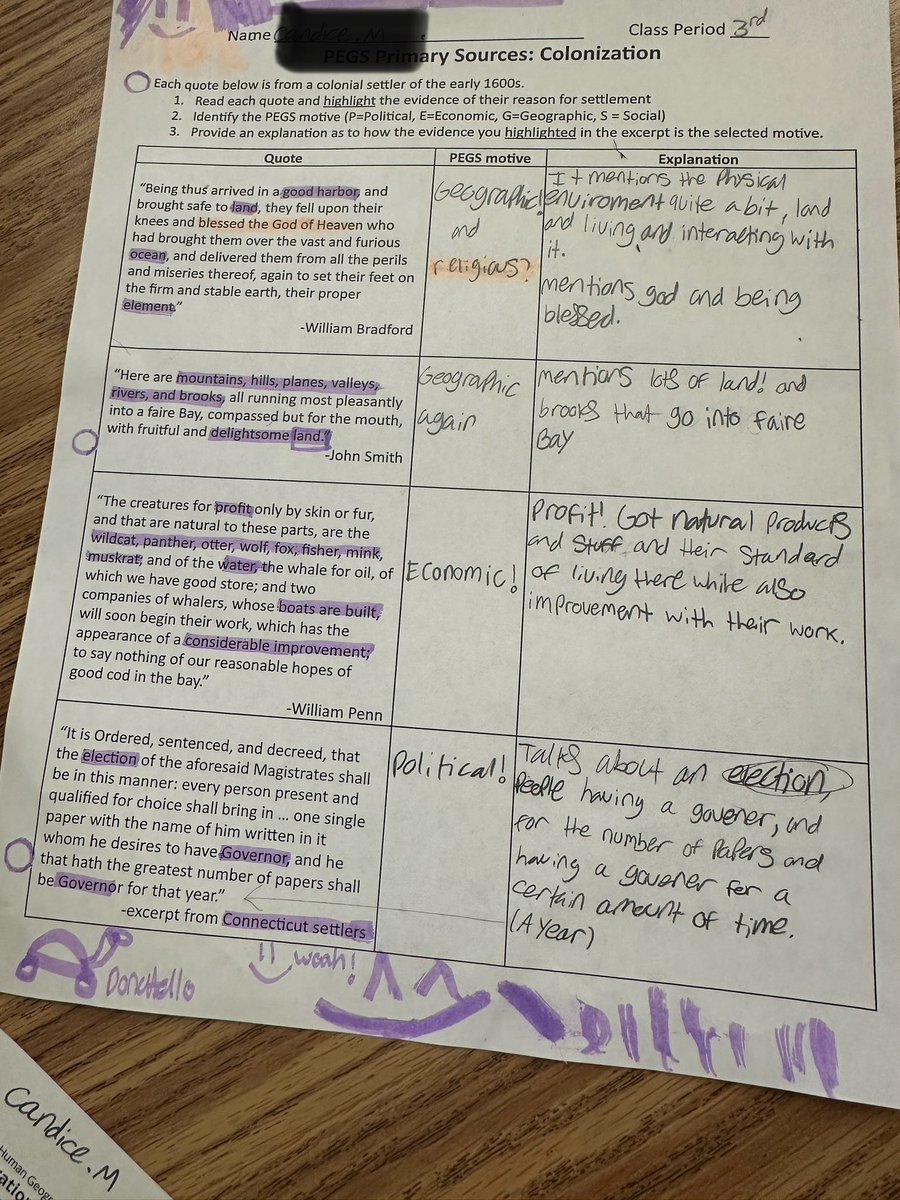 Name Candice.M Class Period 3rd
PEGS Primary Sources: Colonization
Each quote below is from a colonial settler of the early 1600s.
1. Read each quote and highlight the evidence of their reason for settlement
2. Identify the PEGS motive (P=Political, E=Economic, G=Geographic, S = Social)
3. Provide an explanation as to how the evidence you highlighted in the excerpt is the selected motive.
Quote PEGS motive Explanation
"Being thus arrived in a good harbor, and
brought safe to land, they fell upon their
knees and blessed the God of Heaven who
had brought them over the vast and furious
ocean, and delivered them from all the perils
and miseries thereof, again to set their feet on
the firm and stable earth, their proper
element."
-William Bradford
Geographic!
and
religious?
It mentions the Physical
enviroment quite a bit, land
and living and interacting with
it.
mentions god and being
blessed.
"Here are mountains, hills, planes, valleys,
rivers, and brooks, all running most pleasantly
into a faire Bay, compassed but for the mouth,
with fruitful and delightsome land."
-John Smith
Geographic
again
mentions lots of land! and
brooks that go into faire
Bay
"The creatures for profit only by skin or fur,
and that are natural to these parts, are the
wildcat, panther, otter, wolf, fox, fisher, mink,
muskrat; and of the water, the whale for oil, of
which we have good store; and two
companies of whalers, whose boats are built,
will soon begin their work, which has the
appearance of a considerable improvement;
to say nothing of our reasonable hopes of
good cod in the bay."
-William Penn
Economic!
Profit! Got natural Products
and Stuff and their Standard
of living there while also
improvement with their work.
"It is Ordered, sentenced, and decreed, that
the election of the aforesaid Magistrates shall
be in this manner: every person present and
qualified for choice shall bring in ... one single
paper with the name of him written in it
whom he desires to have Governor, and he
that hath the greatest number of papers shall
be Governor for that year."
-excerpt from Connecticut settlers
Political!
Talks about an election,
People having a govener, and
for the number of Papers and
having a govener for a
certain amount of time.
(A Year)
Donatello
woah!
Candice.M
Human Geogr